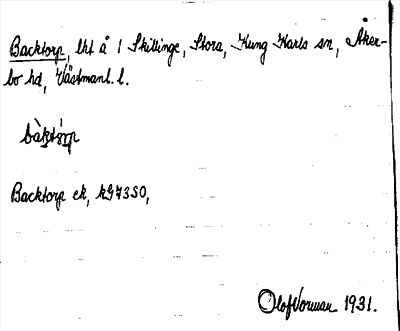 Backtorp, lht å 1 Skillinge, Stora, Kung Karls sn, Åker-
bo hd, Västmanl. l.
bàktórp
Backtorp ek, kG73SO,
Olof Norman 1931.